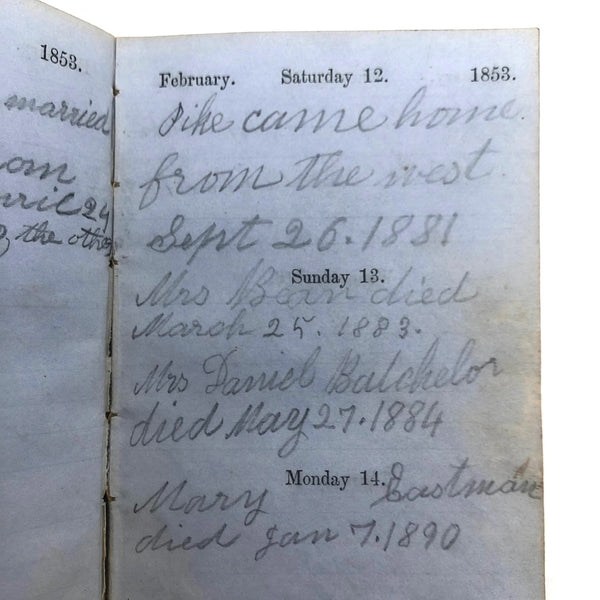 1853.
married
om
24
the other
February. Saturday 12. 1853.
Pike came home.
from the west.
Sept 26. 1881
Sunday 13.
Mrs Bean died
March 25. 1883.
Mrs Daniel Batchelor
died May 27. 1884
Monday 14.
Mary Eastman
died Jan 7. 1890